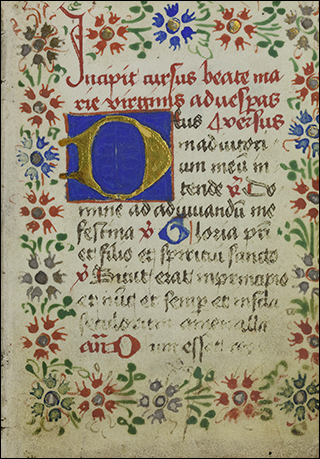 Incipit cursus beate ma
rie virginis aduespas
Deus versus
in adiutori
um meū in
tende v Do
mine ad adiuuandum me
festina v Gloria pri
et filio et spiritui sancto
v Sicut erat in principio
et nūc et semp et in scla
seculorum amen alla
añ Dum esset rex